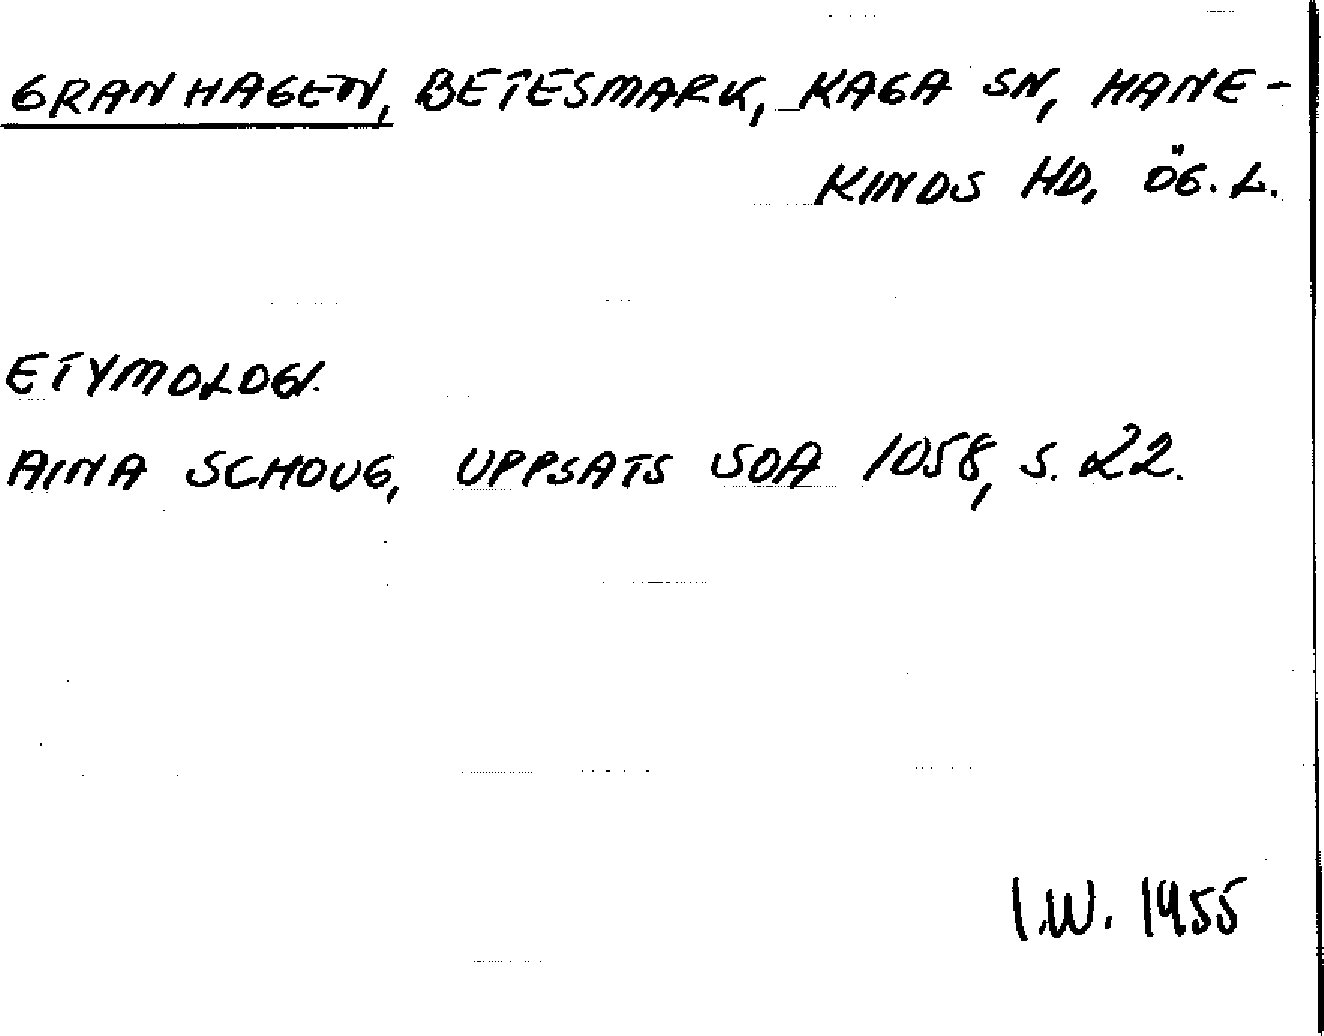 GRANHAGEN, BETESMARK, KAGA SN, HANE-
KINDS HD, ÖG. L.
ETYMOLOGI.
AINA SCHOUG, UPPSATS SOA 1058, S. 22.
I.W. 1955